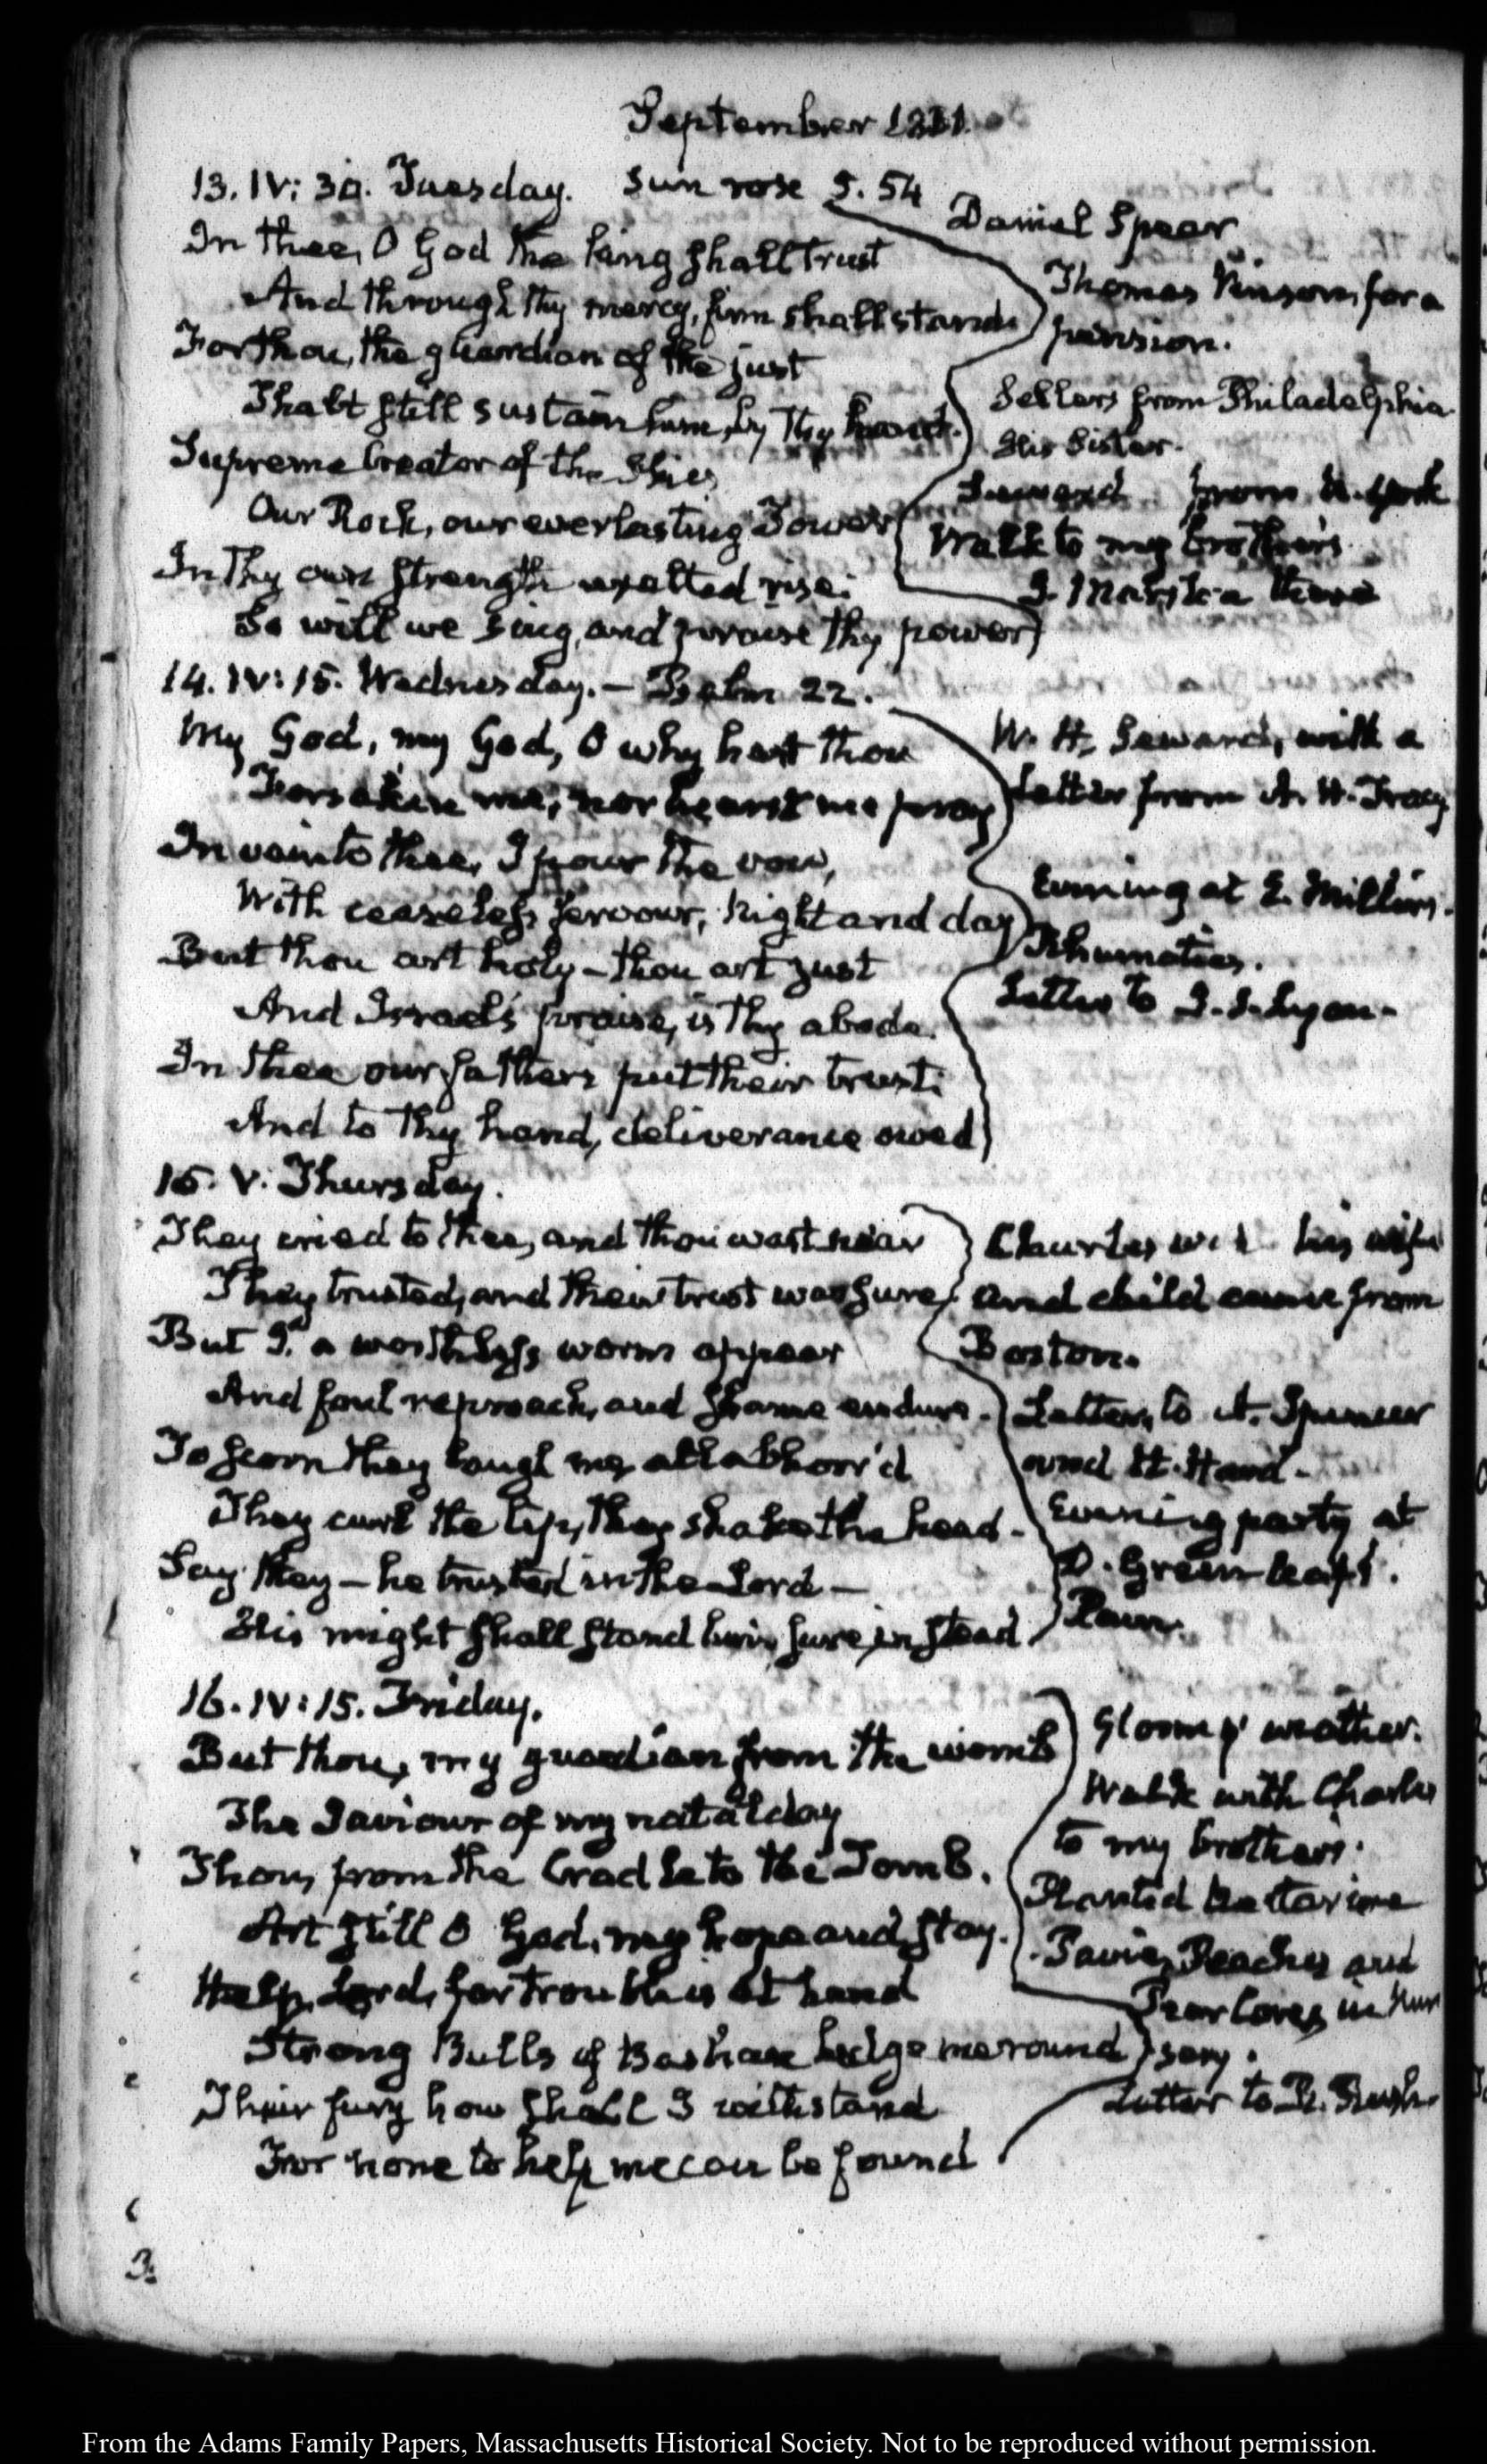 September 1831.
13. IV: 30. Tuesday. Sun rose 5. 54
In thee, O God the king shall trust
And through thy mercy, firm shall stand
For thou, the guardian of the just
Shalt still sustain him, by Thy hand.
Supreme Creator of the Skies
Our Rock, our everlasting Tower
In Thy own strength exalted rise:
So will we sing, and praise thy power
Daniel Spear
Thomas for a
pension.
Sellers from Philadelphia
His Sister.
from N. York
Walk to my brother's
there
14. IV: 15. Wednesday. — Psalm 22.
My God, my God, O why hast thou
Forsaken me, nor hearst me pray
In vain to thee, I pour the vow,
With ceaseless fervour, night and day
But thou art holy — thou art just
And Israel's praise, is Thy abode.
In thee our fathers put their trust:
And to Thy hand, deliverance owed
W. H. Seward, with a
letter from A. H. Tracy
Evening at E. Miller's.
Rhumatics.
Letter to Lyon.
15. V. Thursday.
They cried to thee, and thou wast near
They trusted, and their trust was sure
But I, a worthless worm appear
And foul reproach, and shame endure.
To scorn they laugh me all abhorr'd
They curl the lip, they shake the head.
Say they — he trusted in the Lord —
His might shall stand him, sure, in stead
Charles his wife
and child came from
Boston.
Letters to A. Spencer
and H. Hand.
Evening party at
D. Greenleaf's.
Rain.
16. IV: 15. Friday.
But thou, my guardian from the womb
The Saviour of my natal day
Thou, from the Cradle to the Tomb.
Art still O God, my hope and stay.
Help, Lord, for trouble is at hand
Strong Bulls of Bashan hedge me round
Their fury how shall I withstand
For none to help me can be found
Gloomy weather.
Walk with Charles
to my brother's.
Planted
Peaches and
in Nur
sery.
Letter to R. Rush.
3.
From the Adams Family Papers, Massachusetts Historical Society. Not to be reproduced without permission.